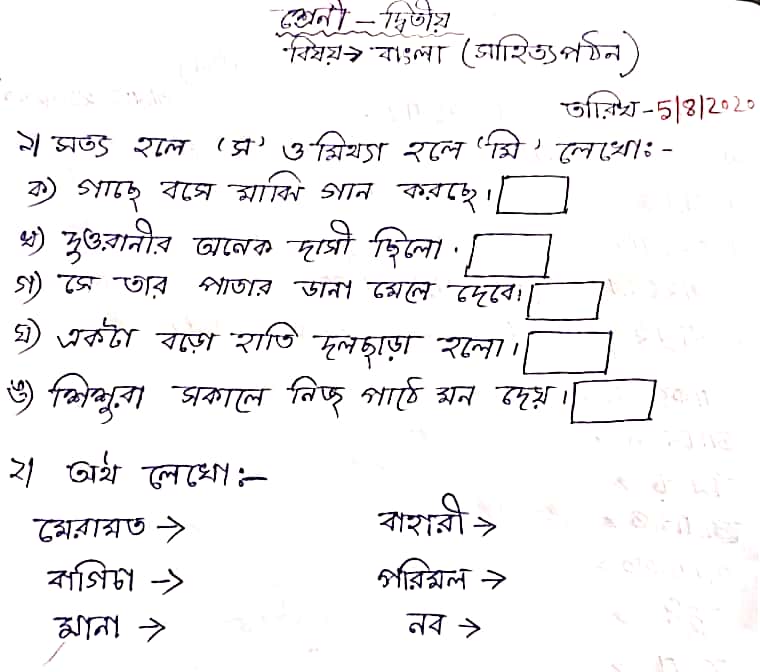 শ্রেনী - দ্বিতীয়
বিষয়→ বাংলা (সাহিত্যপঠন)
তারিখ - 5/8/2020
১| সত্য হলে 'স' ও মিথ্যা হলে 'মি' লেখো :-
ক) গাছে বসে মাঝি গান করছে।
খ) দুওরানীর অনেক দাসী ছিলো .
গ) সে তার পাতার ডানা মেলে দেবে।
ঘ) একটা বড়ো হাতি দলছাড়া হলো।
ঙ) শিশুরা সকালে নিজ পাঠে মন দেয়।
২| অর্থ লেখো :-
মেরামত → বাহারী →
বাগিচা → পরিমল →
মানা → নব →